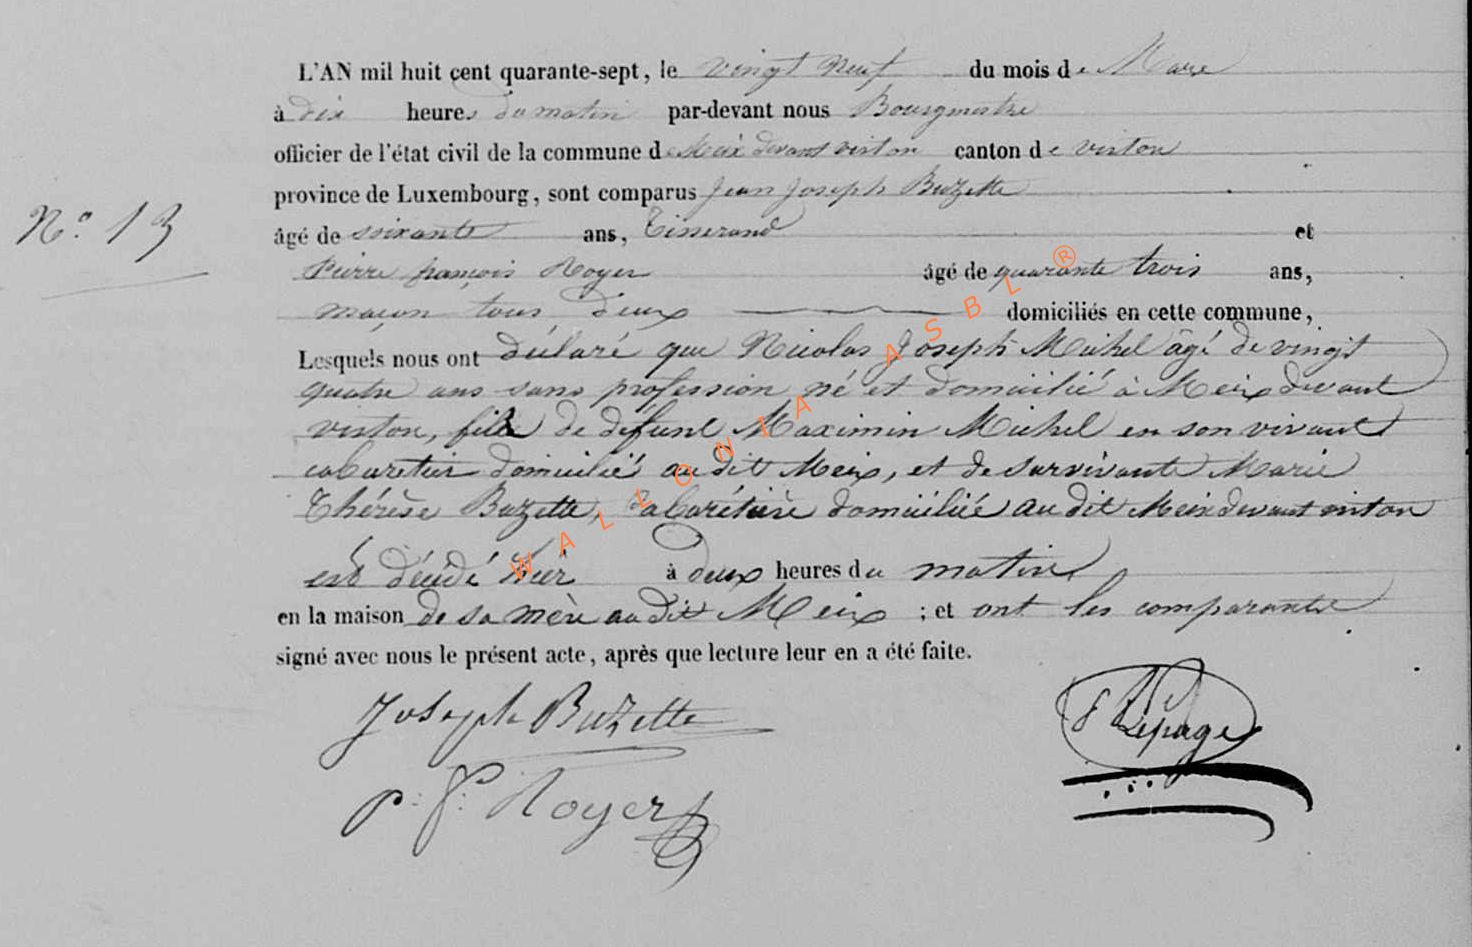 L'AN mil huit cent quarante-sept, le vingt neuf du mois de Mars
à dix heures du matin par-devant nous Bourgmestre
officier de l'état civil de la commune de Meix devant virton canton de virton
province de Luxembourg, sont comparus Jean Joseph Buzette
N.o 13
âgé de soixante ans, Tisserand et
Pierre françois Royer âgé de quarante trois ans,
maçon tous deux domiciliés en cette commune,
Lesquels nous ont déclaré que Nicolas Joseph Michel âgé de vingt
quatre ans sans profession né et domicilié à Meix devant
virton, fils de défunt Maximin Michel en son vivant
cabaretier domicilié au dit Meix, et de survivante Marie
Thérèse Buzette, Cabarétière domiciliée au dit Meix devant virton
est décédé hier à deux heures du matin
en la maison de sa mère au dit Meix ; et ont les comparants
signé avec nous le présent acte, après que lecture leur en a été faite.
Joseph Buzette
Lepage
p: f: Royer
WALLONIA ASBL ®